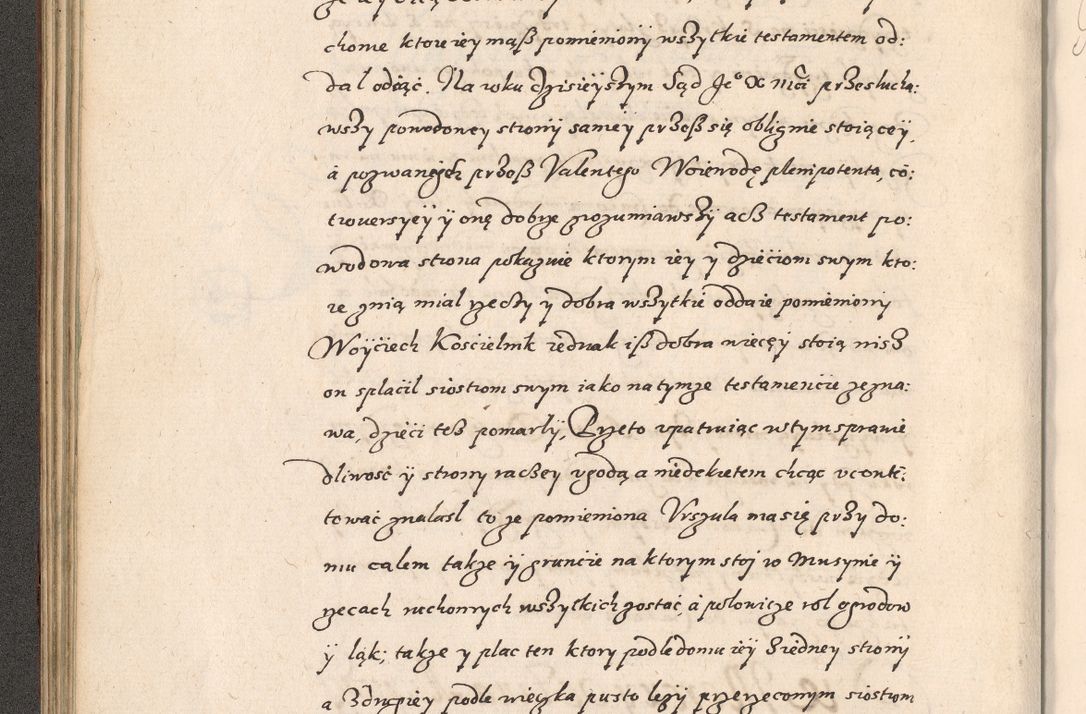 chome ktore iey mąß pomieniony wszytkie testamentem od:
dal odiąć. Na roku dzisieyszym Sąd Je° X Mći przesłucha:
wszy powodowey strony samey przoß się oblignie stoiącey,
á pozwanéych przoß Valentego Woiewodę plenipotenta, cō:
trouersyey ÿ onę dobrze zrozumiawszy acz testament po:
wodowa strona pokazuie ktorym iey y dzieciom swym kto:
re znią mial rzeczy y dobra wszytkie oddaie pomieniony
Woyciech Koscielnik iednak iß dobra więcey stoią nisz
on splacil siostrom swym iako na tymze testamencie zezna:
wa, dzieci też pomarly, Przeto vpatruiąc w tym sprawie
dliwość ÿ strony raczey vgodą a niedekretem chcąc vcontē:
tować znalasl to ze pomieniona Vrszula ma się przy do:
mu calem takze ÿ gruncie na ktorym stoj w Musynie ÿ
rzecach ruchomych wszytkich zostać, á polowicze rol ogrodow
ÿ ląk; takze y plac ten ktory podle domu iey z iedney strony
a z drugiey podle wieczka pusto lezy przerzeconym siostrom